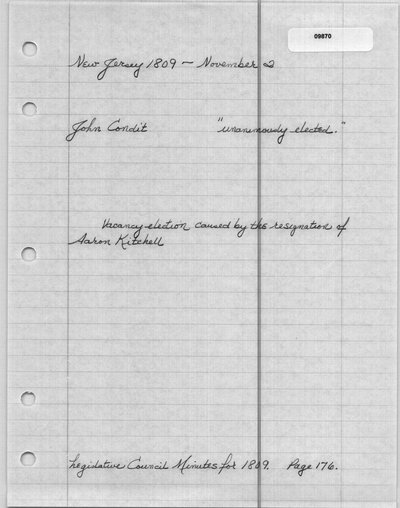 09870
New Jersey 1809 - November 2
John Condit "unanimously elected."
Vacancy election caused by the resignation of
Aaron Kitchell
Legislative Council Minutes for 1809. Page 176.